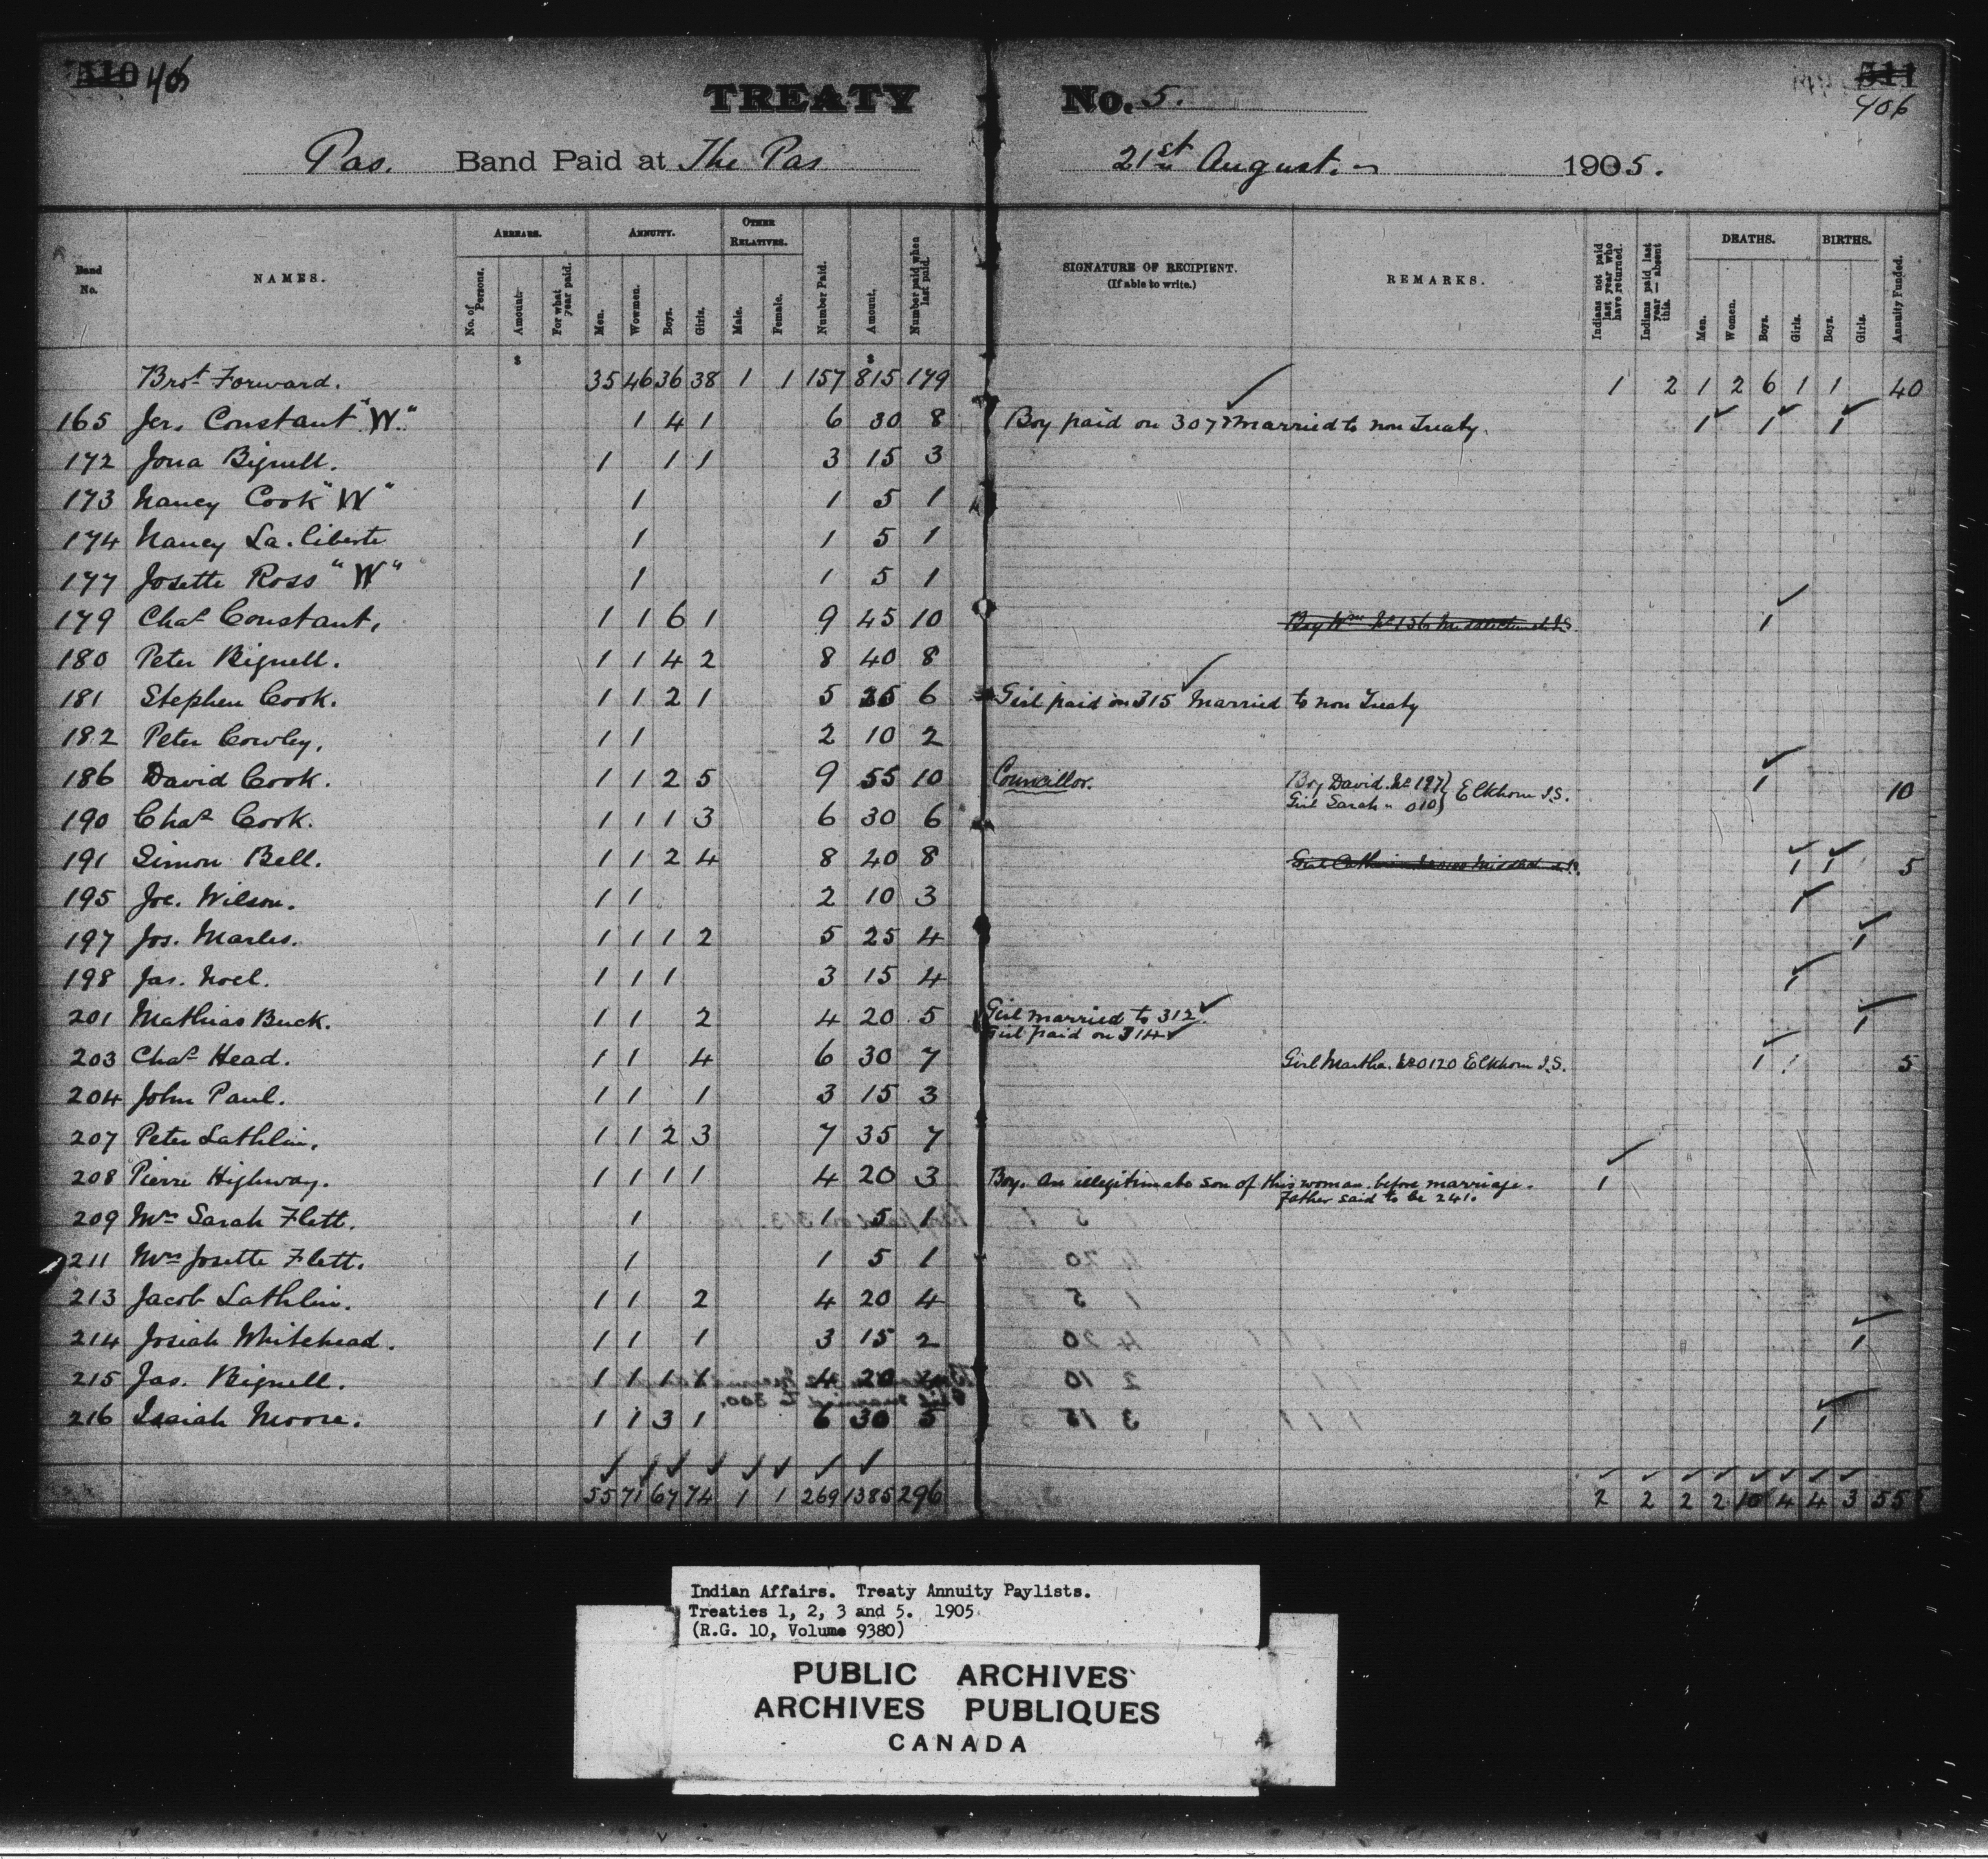 406
406
TREATY No. 5.
Pas. Band Paid at The Pas 21st August. 1905.
Band No. NAMES. ARREARS. ANNUITY. OTHER RELATIVES. SIGNATURE OF RECIPIENT. (If able to write.) REMARKS. DEATHS. BIRTHS.
No. of Persons. Amount. For what year paid. Men. Wowmen. Boys. Girls. Male. Female. Number Paid. Amount. Number paid when last paid. Indians not paid last year who have returned. Indians paid last year — absent this. Men. Women. Boys. Girls. Boys. Girls. Annuity Funded.
$ $
Brot Forward. 35 46 36 38 1 1 157 815 179 1 2 1 2 6 1 1 40
165 Jer. Constant "W." 1 4 1 6 30 8 Boy paid on 307 Married to non Treaty. 1 1 1
172 Jona Bignell. 1 1 1 3 15 3
173 Nancy Cook "W" 1 1 5 1
174 Nancy La. liberte 1 1 5 1
177 Josette Ross "W" 1 1 5 1
179 Chas Constant, 1 1 6 1 9 45 10 1
180 Peter Bignell. 1 1 4 2 8 40 8
181 Stephen Cook. 1 1 2 1 5 25 6 Girl paid on 315 Married to non Treaty
182 Peter Cowley, 1 1 2 10 2
186 David Cook. 1 1 2 5 9 55 10 Councillor. Boy David. No 197 1 10
Girl Sarah " 010 } Elkhorn I.S.
190 Chas Cook. 1 1 1 3 6 30 6
191 Simon Bell. 1 1 2 4 8 40 8 1 1 5
195 Joe. Wilson. 1 1 2 10 3 1
197 Jos. Marles. 1 1 1 2 5 25 4 1
198 Jas. Noel. 1 1 1 3 15 4 1
201 Mathias Buck. 1 1 2 4 20 5 Girl married to 312. 1
Girl paid on 314
203 Chas Head. 1 1 4 6 30 7 Girl Martha. No 0120 Elkhorn I.S. 1 1 5
204 John Paul. 1 1 1 3 15 3
207 Peter Lathlin. 1 1 2 3 7 35 7
208 Pierre Highway. 1 1 1 1 4 20 3 Boy. An illegitimate son of this woman before marriage. 1
Father said to be 241.
209 Mrs Sarah Flett. 1 1 5 1
211 Mrs Josette Flett. 1 1 5 1
213 Jacob Lathlin. 1 1 2 4 20 4
214 Josiah Whitehead. 1 1 1 3 15 2 1
215 Jas. Bignell. 1 1 1 1 4 20
216 Isaiah Moore. 1 1 3 1 6 30 5 1
55 71 67 74 1 1 269 1385 296 2 2 2 2 10 4 4 3 55
Indian Affairs. Treaty Annuity Paylists.
Treaties 1, 2, 3 and 5. 1905
(R.G. 10, Volume 9380)
PUBLIC ARCHIVES
ARCHIVES PUBLIQUES
CANADA